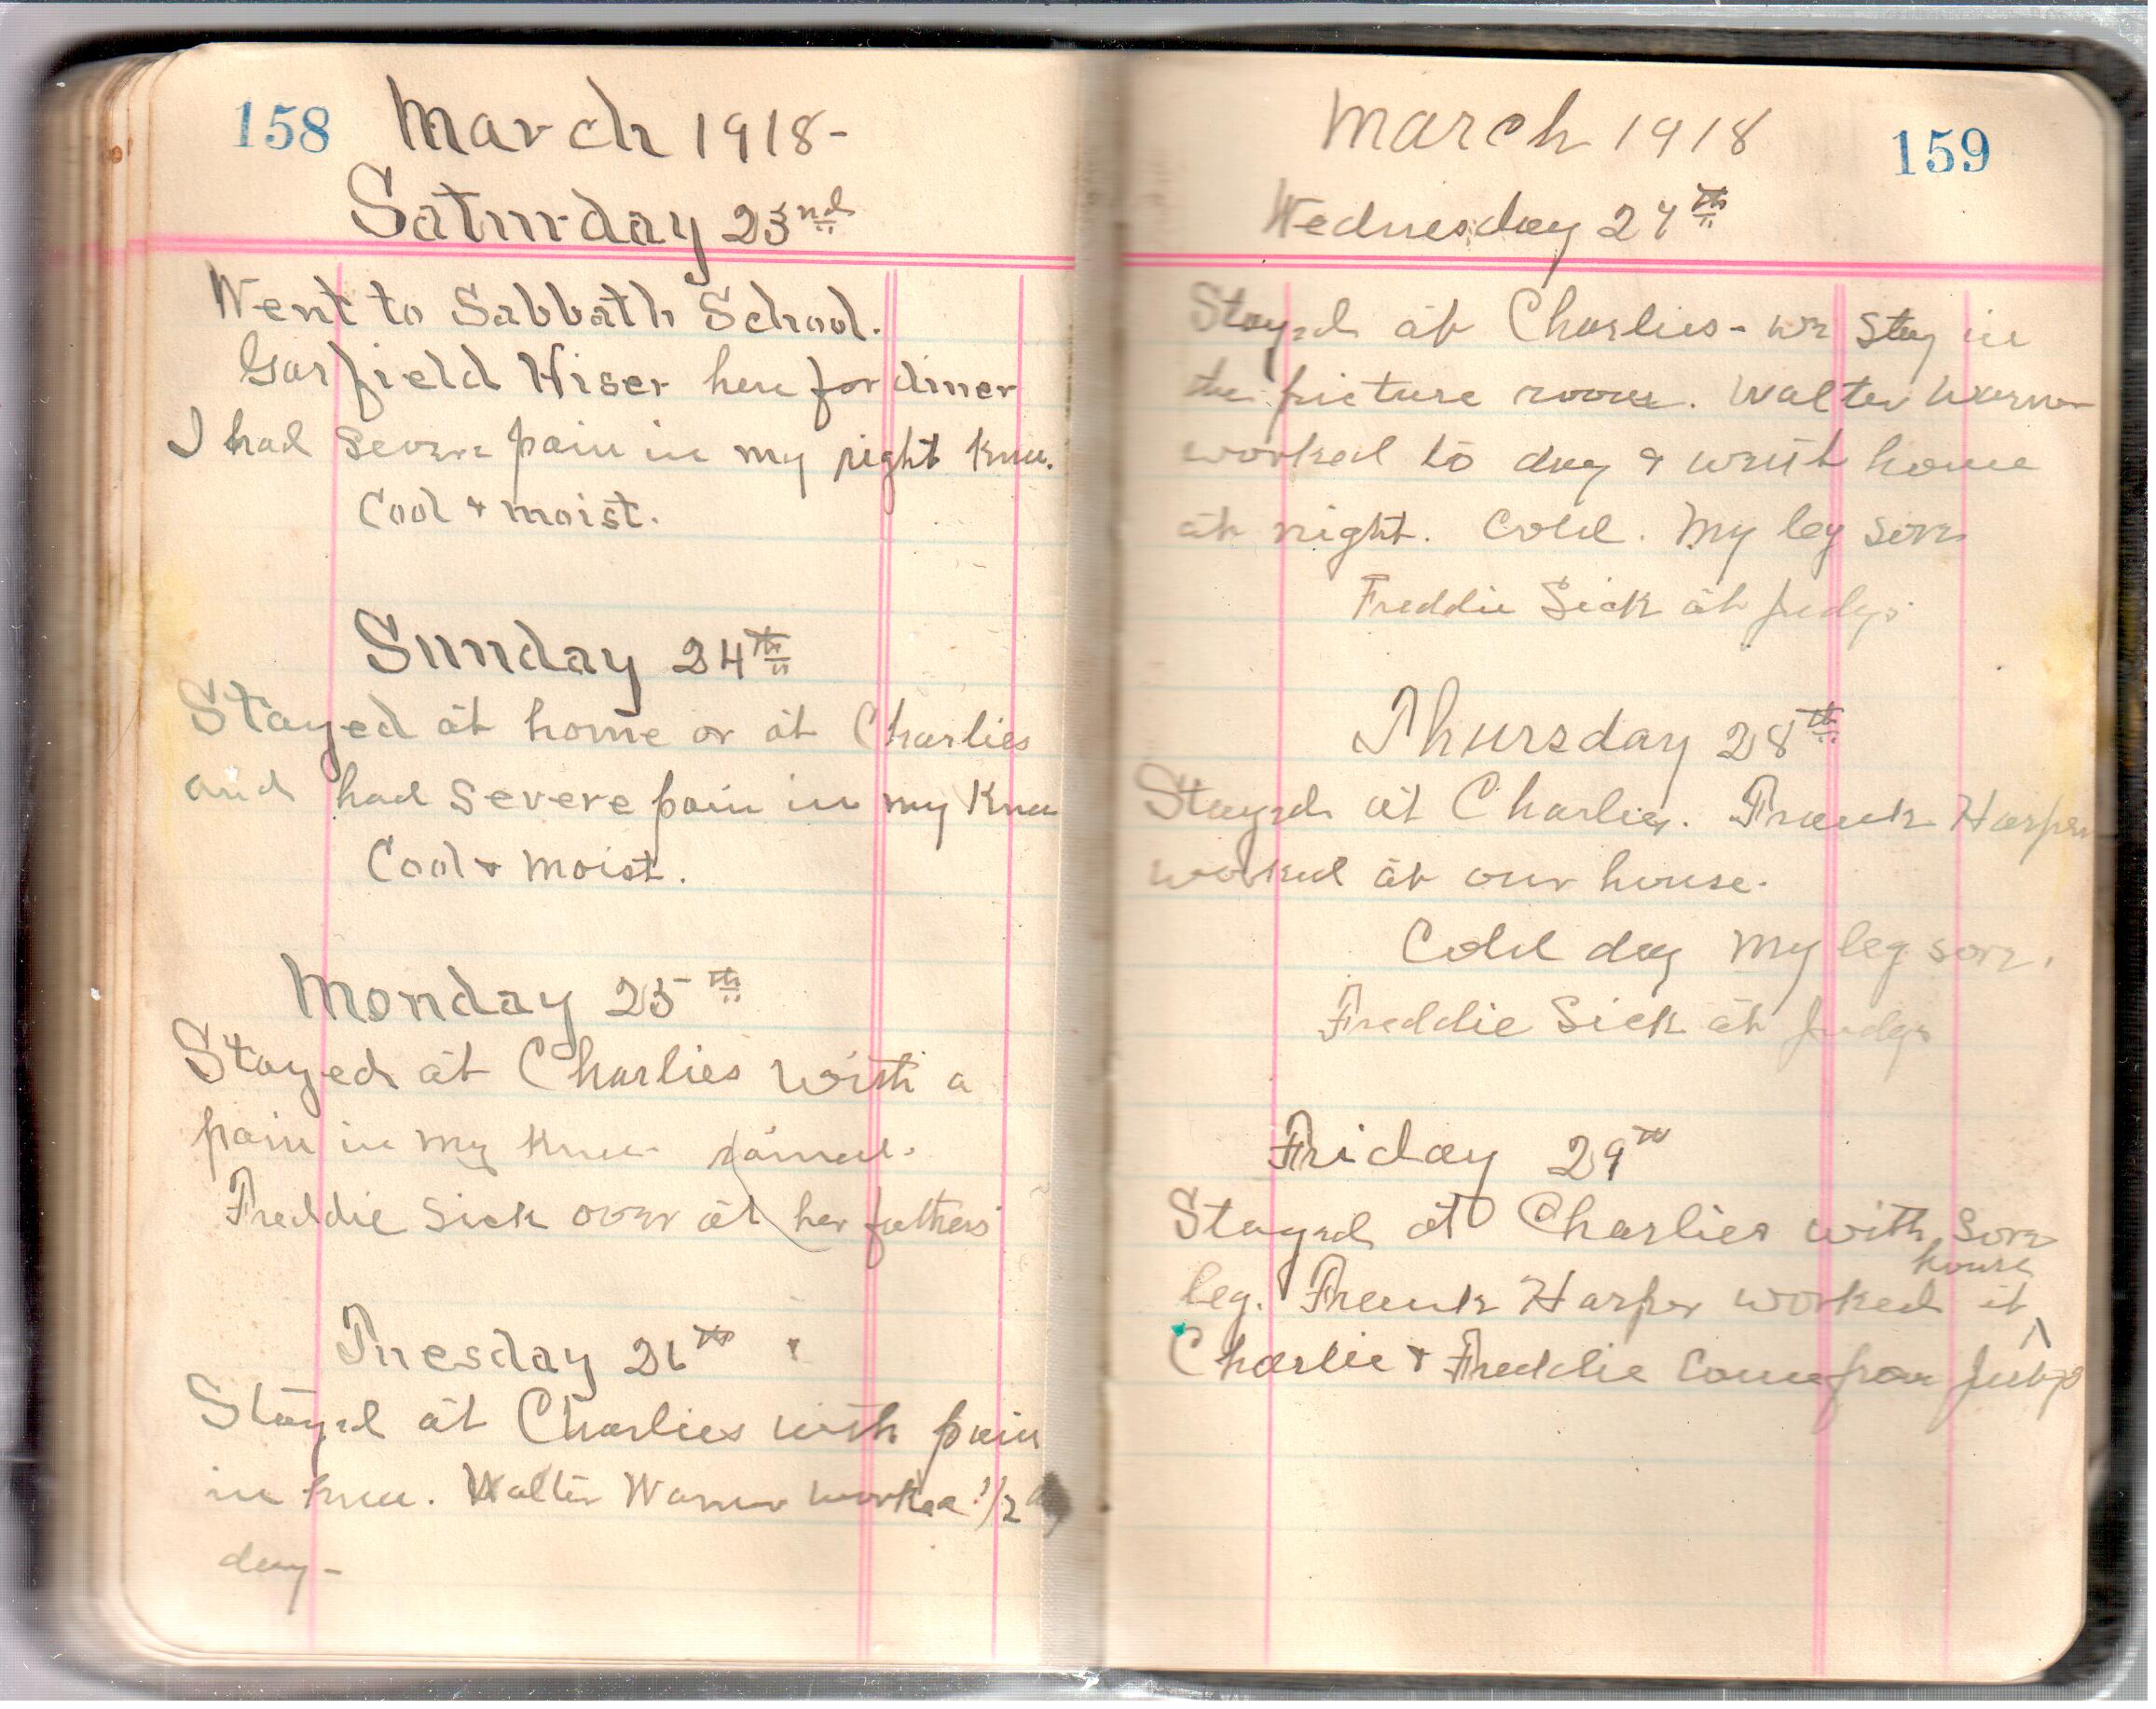 158 March 1918-
Saturday 23nd
Went to Sabbath School.
Garfield Hiser here for diner
I had severe pain in my right knee.
Cool + moist.
Sunday 24th
Stayed at home or at Charlies
and had severe pain in my Knee
Cool + moist.
Monday 25th
Stayed at Charlies with a
pain in my Knee.
Freddie Sick over at her fathers
Tuesday 26th
Stayed at Charlies with pain
in knee. Walter Warner worked 1/2 a
day-
March 1918 159
Wednesday 27th
Stayed at Charlies - we stay in
the picture room. Walter Warner
worked to day & went home
at night. Cold. My leg sore
Freddie Sick at Judys
Thursday 28th
Stayed at Charlies. Frank Harper
worked at our house.
Cold day My leg sore.
Freddie Sick at Judys
Friday 29th
Stayed at Charlies with sore
house
leg. Frank Harper worked at ^
Charlie + Freddie Come from Judys